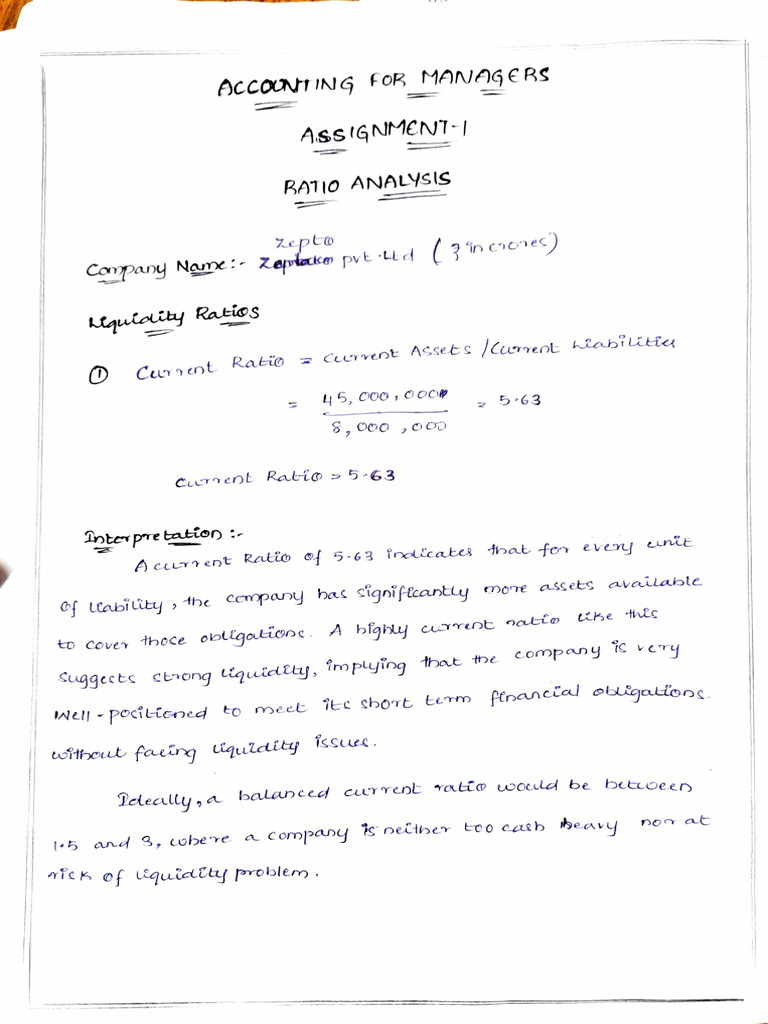 ACCOUNTING FOR MANAGERS
ASSIGNMENT-1
RATIO ANALYSIS
Zepto
Company Name:- pvt.Ltd (₹ in crores)
Liquidity Ratios
① Current Ratio = Current Assets /Current Liabilities
= 45,000,000 / 8,000,000 = 5.63
Current Ratio = 5.63
Interpretation :-
A current Ratio of 5.63 indicates that for every unit
of liability, the company has significantly more assets available
to cover those obligations. A highly current ratio like this
suggests strong liquidity, implying that the company is very
well-positioned to meet its short term financial obligations.
without facing liquidity issues.
Ideally, a balanced current ratio would be between
1.5 and 3, where a company is neither too cash heavy nor at
risk of liquidity problem.